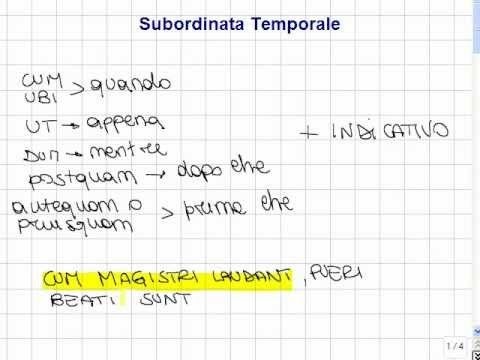 Subordinata Temporale
CUM
UBI > quando
UT → appena
DUM → mentre
postquam → dopo che
antequam o
priusquam > prima che
+ INDICATIVO
CUM MAGISTRI LAUDANT, PUERI
BEATI SUNT
1/4